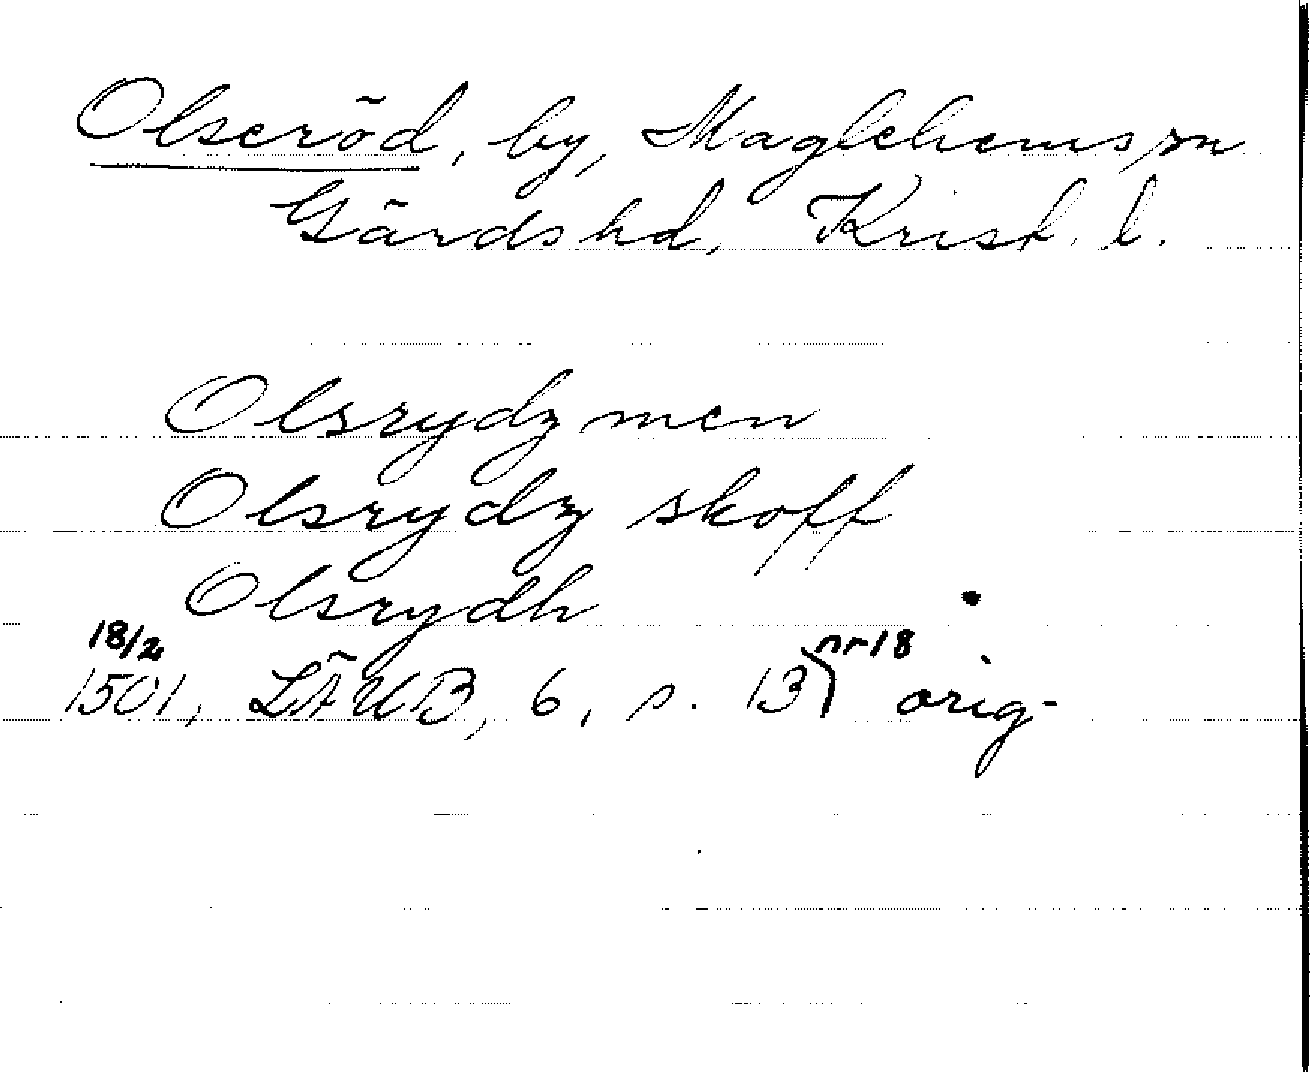 Olseröd, by, Maglehems sn
Gärds hd, Krist. l.
Olsrydz men
Olsrydz skoff
Olsrydh
18/2 nr 18
1501, LÄUB, 6, s. 13 orig.